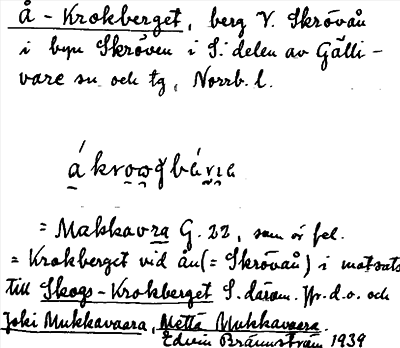 Å - Krokberget, berg V. Skrövån
i byn Skröven i S. delen av Gälli-
vare sn och tg, Norrb. l.
= Makkavra G. 22, som är fel.
= Krokberget vid ån (= Skrövån) i motsats
till Skogs-Krokberget S. därom. Jfr. d.o. och
Joki Mukkavaara, Mettä Mukkavaara.
Edvin Brännström 1939